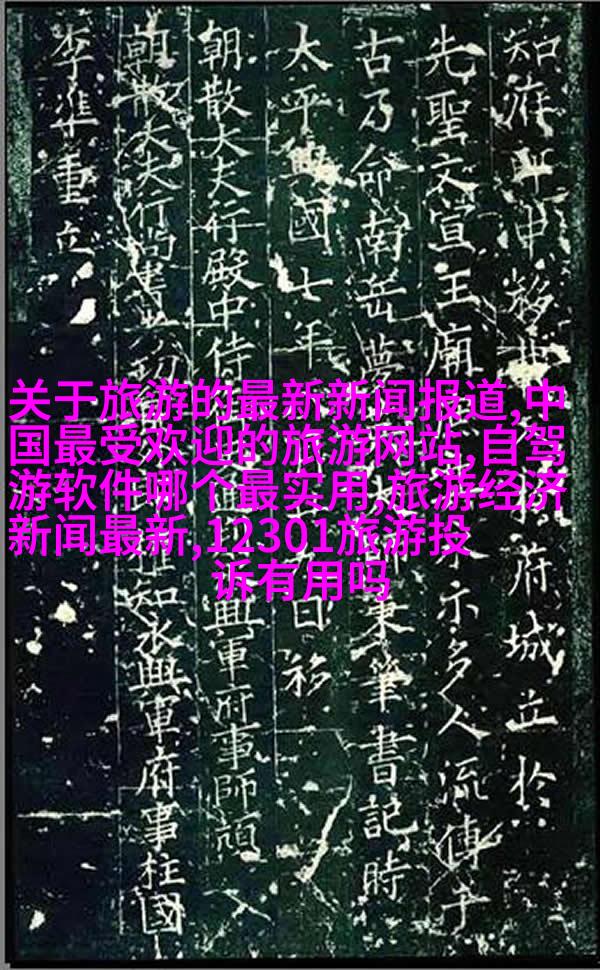 关于旅游的最新新闻报道,中
国最受欢迎的旅游网站,自驾
游软件哪个最实用,旅游经济
新闻最新,12301旅游投
诉有用吗
知府郎中移府城立於
先聖文宣王廟示多人流傳千
古乃命南岳夢秉筆書記時
太平興國七年日移
朝散大夫行殿中侍通興軍府事師頏
朝散大夫行尚書知永興軍府事柱國
李準重立